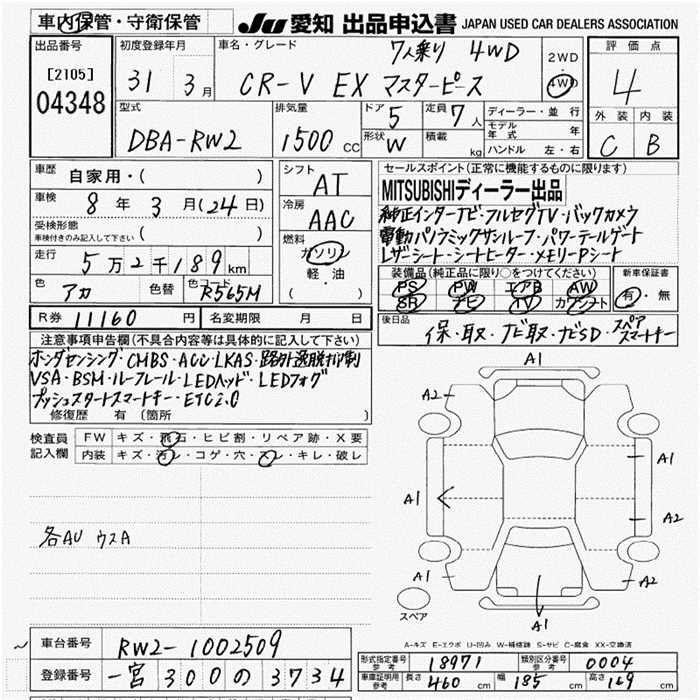 車内保管・守衛保管
JU 愛知 出品申込書 JAPAN USED CAR DEALERS ASSOCIATION
出品番号
[2105]
04348
初度登録年月
31 3月
車名・グレード
7人乗り 4WD
CR-V EX マスターピース
2WD
・
4WD
評価点
4
外装 内装
C B
型式
DBA-RW2
排気量
1500 cc
ドア 5
形状 W
定員 7人
積載 kg
ディーラー・並行
モデル年式 年
ハンドル 左・右
車歴
自家用・( )
車検
8年 3月 (24日)
受検形態
車検付きのみ記入して下さい ( )
走行
5万2千189km
色
アカ
色替
色コード
R565M
シフト
AT
冷房
AAC
燃料
ガソリン
軽・油
( )
セールスポイント(正常に機能するものに限ります)
MITSUBISHIディーラー出品
純正インターナビ・フルセグTV・バックカメラ
電動パノラミックサンルーフ・パワーテールゲート
Lザーシート・シートヒーター・メモリーPシート
装備品(純正品に限り○をつけてください)
PS PW エアB AW
SR ナビ TV カワシート
新車保証書
有・無
R券 11160円
名変期限 月 日
後日品
保・取・ナビ取・ナビSD・スペアスマートキー
注意事項申告欄(不具合内容等は具体的に記入して下さい)
ホンダセンシング・CMBS・ACC・LKAS・路外逸脱抑制
VSA・BSM・ルーフレール・LEDヘッド・LEDフォグ
プッシュスタートスマートキー・ETC2.0
修復歴 有 (箇所 )
検査員
記入欄
FW キズ・飛石・ヒビ割・リペア跡・X要
内装 キズ・汚レ・コゲ・穴・スレ・キレ・破レ
各AU ウスA
A1
A2
A1
A1
A2
A1
A2
A1
スペア
A-キズ E-エクボ U-凹み W-補修跡 S-サビ C-腐食 XX-交換済
車台番号
RW2-1002509
登録番号
一宮 300 の 3734
形式指定番号
参考
18971
類別区分番号
参考
0004
車庫証明用
参考
長さ 460cm 幅 185cm 高さ 169cm